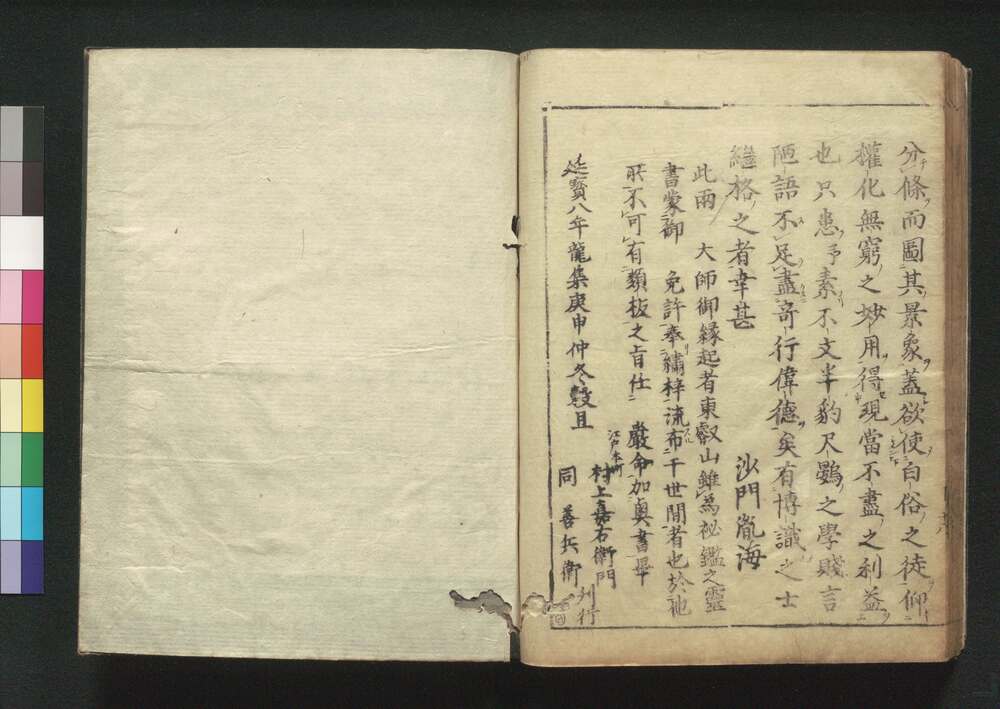 分條而圖其景象蓋欲使白俗之徒仰
權化無窮之妙用得現當不盡之利益
也只患予素不文半豹尺鷃之學賤言
陋語不足盡奇行偉德矣有博識之士
繼格之者幸甚
沙門胤海
此兩 大師御縁起者東叡山雖為祕鑑之靈
書蒙御 免許奉繡梓流布于世間者也於他
所不可有類板之旨仕 嚴命加奧書畢
延寶八年龍集庚申仲冬穀旦
江戸本町
村上嘉右衛門
同 善兵衛
刊行